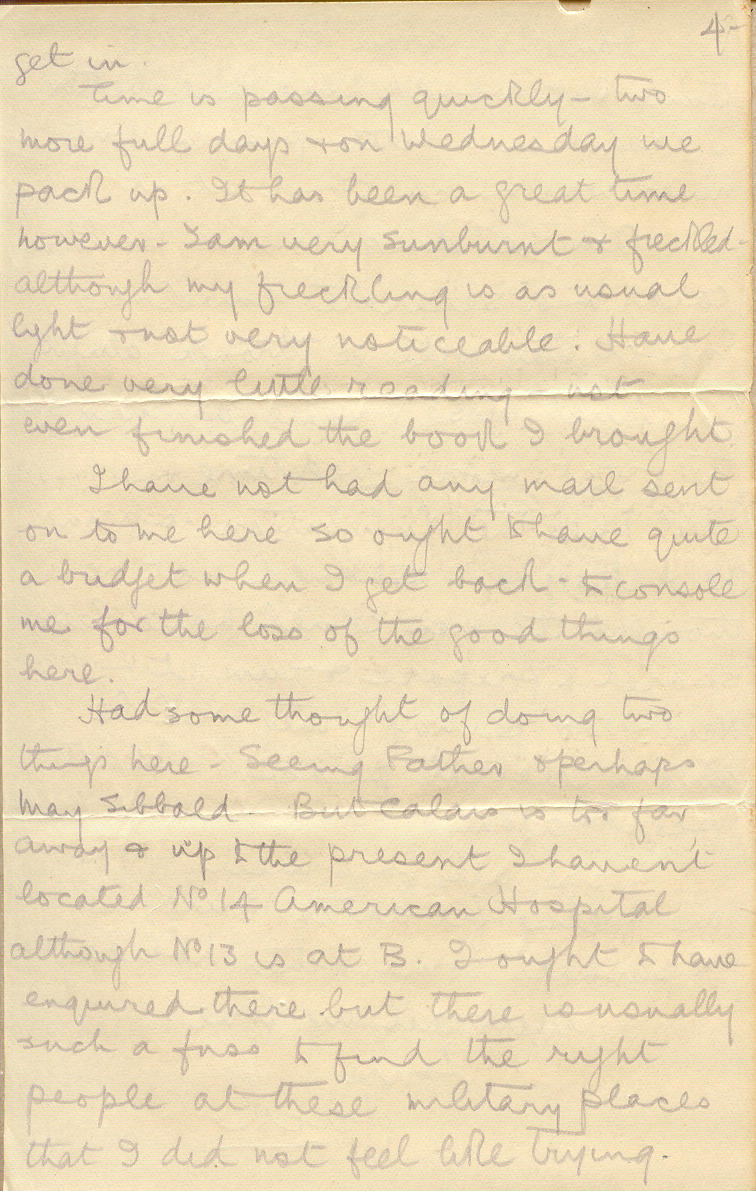 4-
get in.
Time is passing quickly - two
more full days & on Wednesday we
pack up. It has been a great time
however - I am very sunburnt & freckled -
although my freckling is as usual
light & not very noticeable. Have
done very little reading - not
even finished the book I brought.
I have not had any mail sent
on to me here so ought to have quite
a budget when I get back - to console
me for the loss of the good things
here.
Had some thought of doing two
things here - Seeing Father & perhaps
May Sibbald. But Calais is too far
away & up to the present I haven't
located No 14 American Hospital
although No 13 is at B. I ought to have
enquired there but there is usually
such a fuss to find the right
people at these military places
that I did not feel like trying.